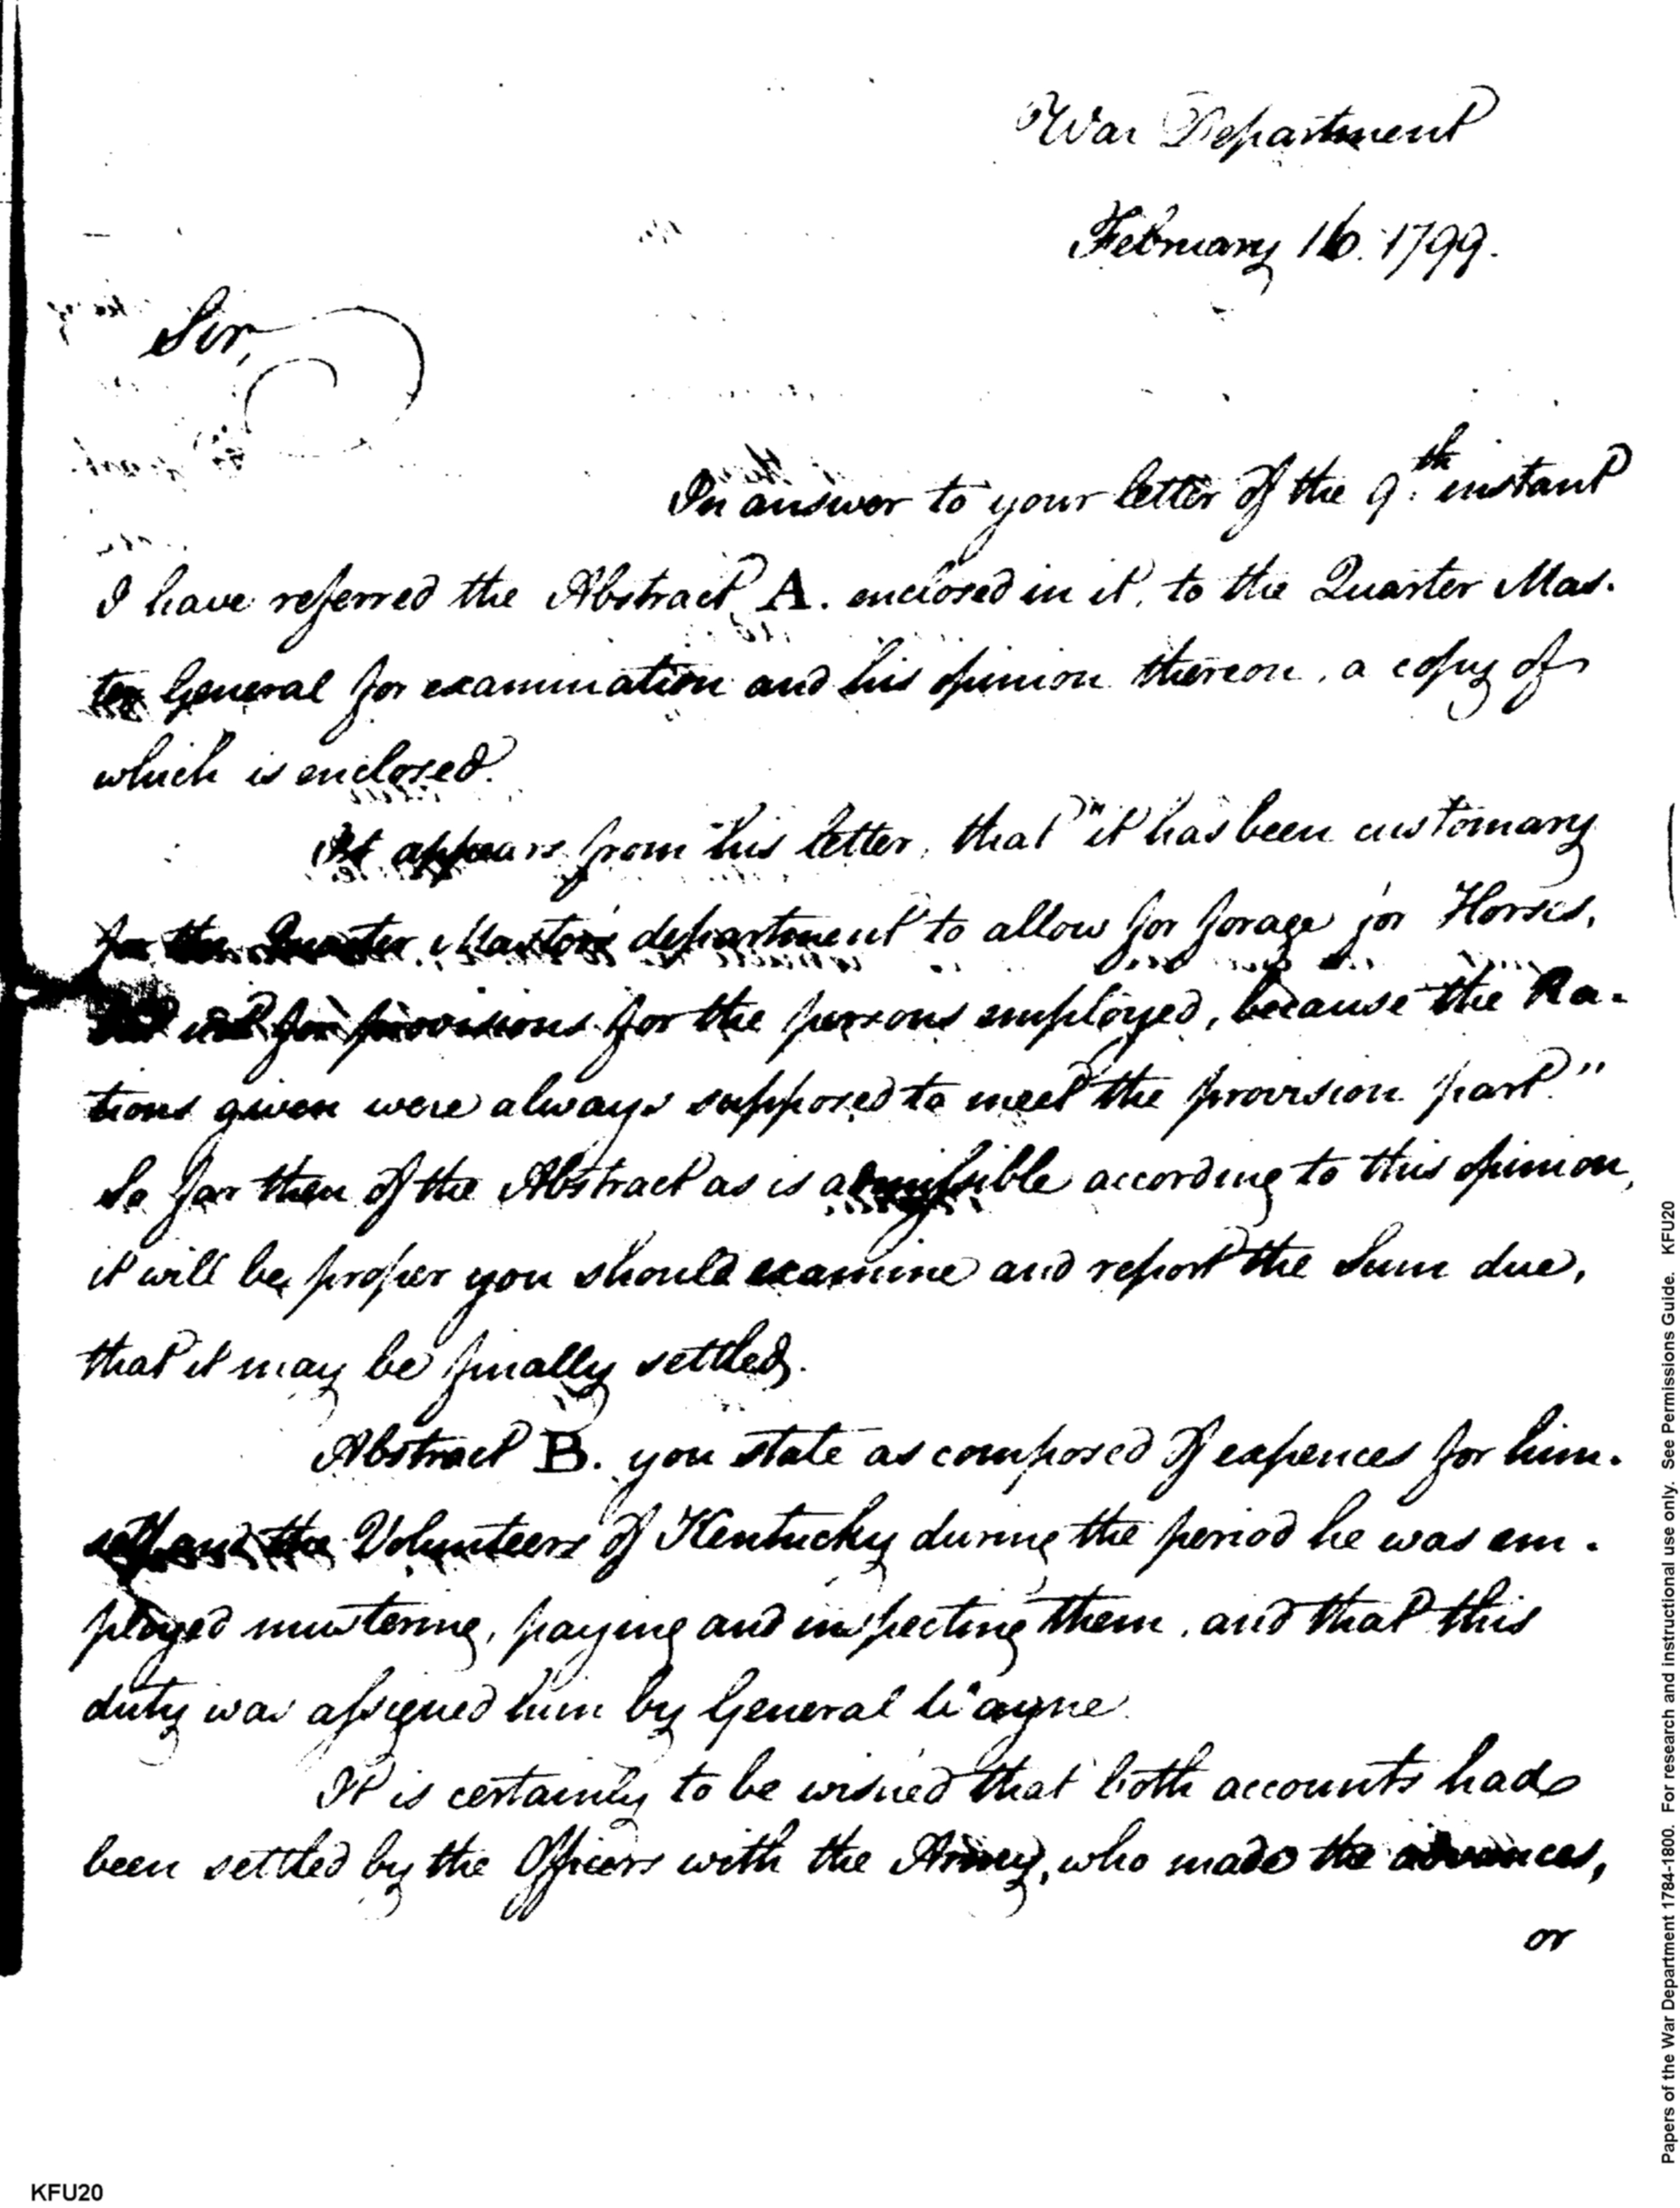 War Department
February 16. 1799.
Sir,
In answer to your letter of the 9th instant
I have referred the Abstract A. enclosed in it, to the Quarter Mas-
ter General for examination and his opinion thereon, a copy of
which is enclosed.
It appears from his letter, that "it has been customary
for the Quarter Master's department to allow for forage for Horses,
but not for provisions for the persons employed, because the Ra-
tions given were always supposed to meet the provision part."
So far then of the Abstract as is admissible according to this opinion,
it will be proper you should examine and report the Sum due,
that it may be finally settled.
Abstract B. you state as composed of expences for him-
self and the Volunteers of Kentucky during the period he was em-
ployed mustering, paying and inspecting them, and that this
duty was assigned him by General Wayne.
It is certainly to be wished that both accounts had
been settled by the Officers with the Army, who made the advances,
or
KFU20
Papers of the War Department 1784-1800. For research and instructional use only. See Permissions Guide. KFU20